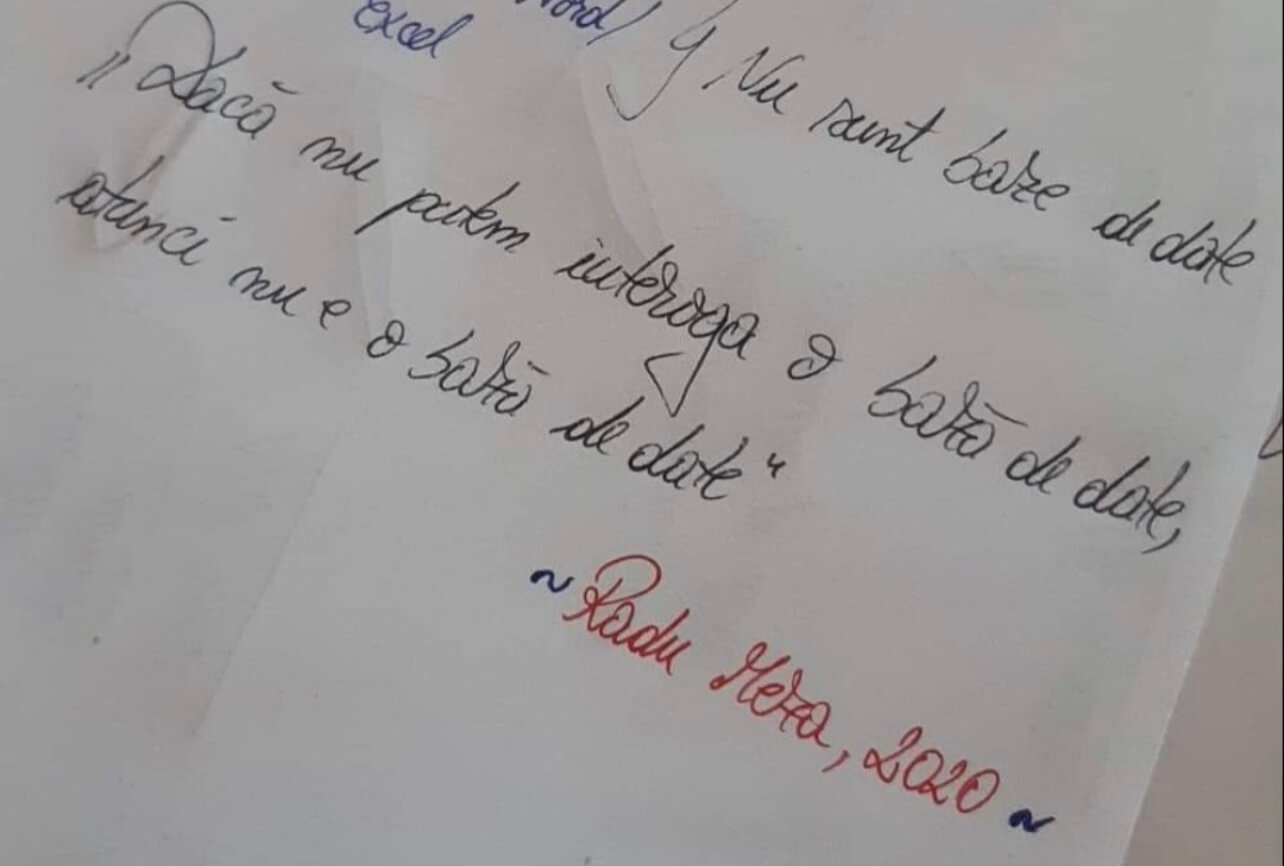 word/
excel
Nu sunt baze de date
„Dacă nu putem interoga o bază de date,
atunci nu e o bază de date"
~ Radu Meza, 2020 ~